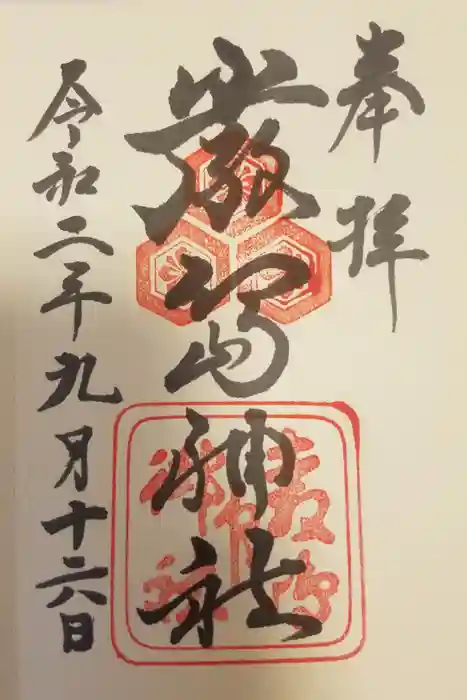 奉拝
厳島神社
令和二年九月十六日